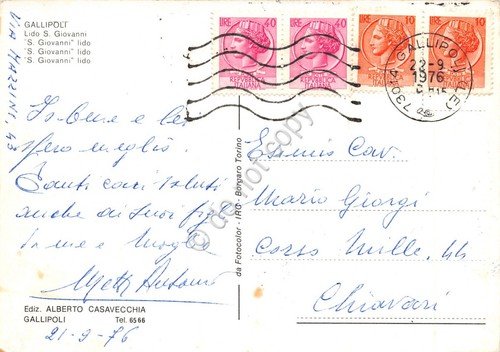 GALLIPOLI
Lido S. Giovanni
"S. Giovanni" lido
"S. Giovanni" lido
"S. Giovanni" lido
VIA MAZZINI, 43
LIRE 40
LIRE 40
LIRE 10
LIRE 10
REPUBBLICA ITALIANA
REPUBBLICA ITALIANA
73014 GALLIPOLI (LE)
22-9
1976
Sto bene e le
spero meglio.
Tanti cari saluti
anche ai suoi
e moglie
21-9-76
Ediz. ALBERTO CASAVECCHIA
GALLIPOLI Tel. 6566
da Fotocolor - IRO - Borgaro Torino
do not copy
Esimio Cav.
Mario Giorgi
Corso Mille, 44
Chiavari